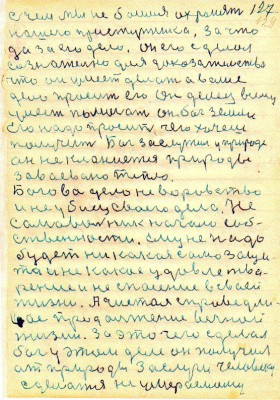 с чем мы не боимся охраняем 127
нашего преступника, за что
да за его дело. он его сделал
сознательно для доказательства
что он умеет делать а в деле
дело просит его Он делец всему
умеет помогать он бог земли
Его надо просить, чего хочеш
получит Бог заслужил у природе
он не клонется природы
завоевано тепло.
Богова дело не воровство
и не убиец своего дела. Не
самовольник начало соб-
ственности. ему не надо
будет никакая само защи-
та и не какое удовлетво-
рение и не спасение в своей
жизни. А чистая справедли-
вое продолжение вечной
жизни. За это чего сделал
бог у этом деле он получил
от природы Заслуги человеку
сделатся не умераемому